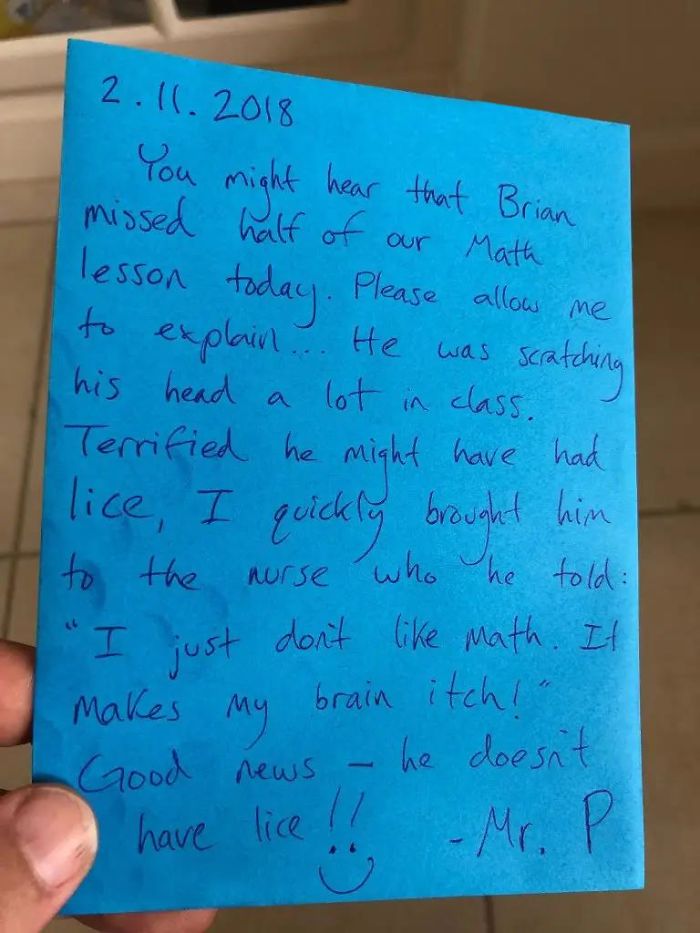 2.11.2018
You might hear that Brian
missed half of our Math
lesson today. Please allow me
to explain... He was scratching
his head a lot in class.
Terrified he might have had
lice, I quickly brought him
to the nurse who he told:
"I just don't like math. It
makes my brain itch!"
Good news – he doesn't
have lice!!
- Mr. P